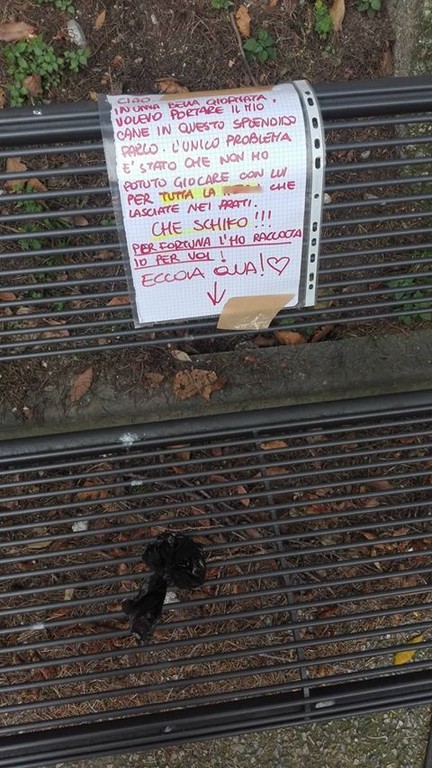 CIAO
IN UNA BELLA GIORNATA,
VOLEVO PORTARE IL MIO
CANE IN QUESTO SPLENDIDO
PARCO. L'UNICO PROBLEMA
E' STATO CHE NON HO
POTUTO GIOCARE CON LUI
PER TUTTA LA CHE
LASCIATE NEI PRATI.
CHE SCHIFO!!!
PER FORTUNA L'HO RACCOLTA
IO PER VOI!
ECCOLA QUA!